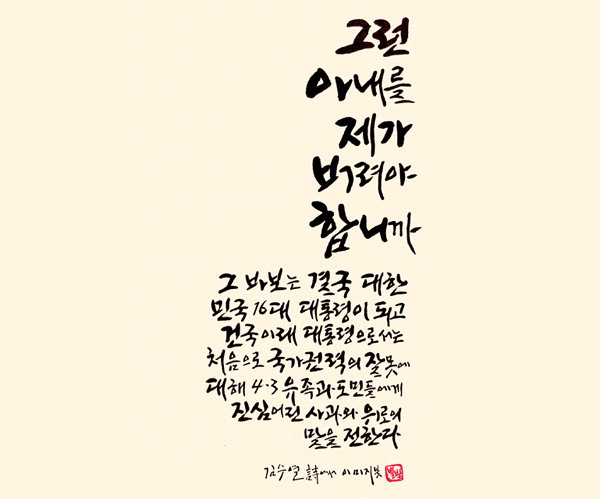 그런
아내를
제가
버려야
합니까
그 바보는 결국 대한
민국 16대 대통령이 되고
건국이래 대통령으로서는
처음으로 국가권력의 잘못에
대해 4·3 유족과 도민들에게
진심어린 사과와 위로의
말을 전한다
김수열 詩에서 이미지붓